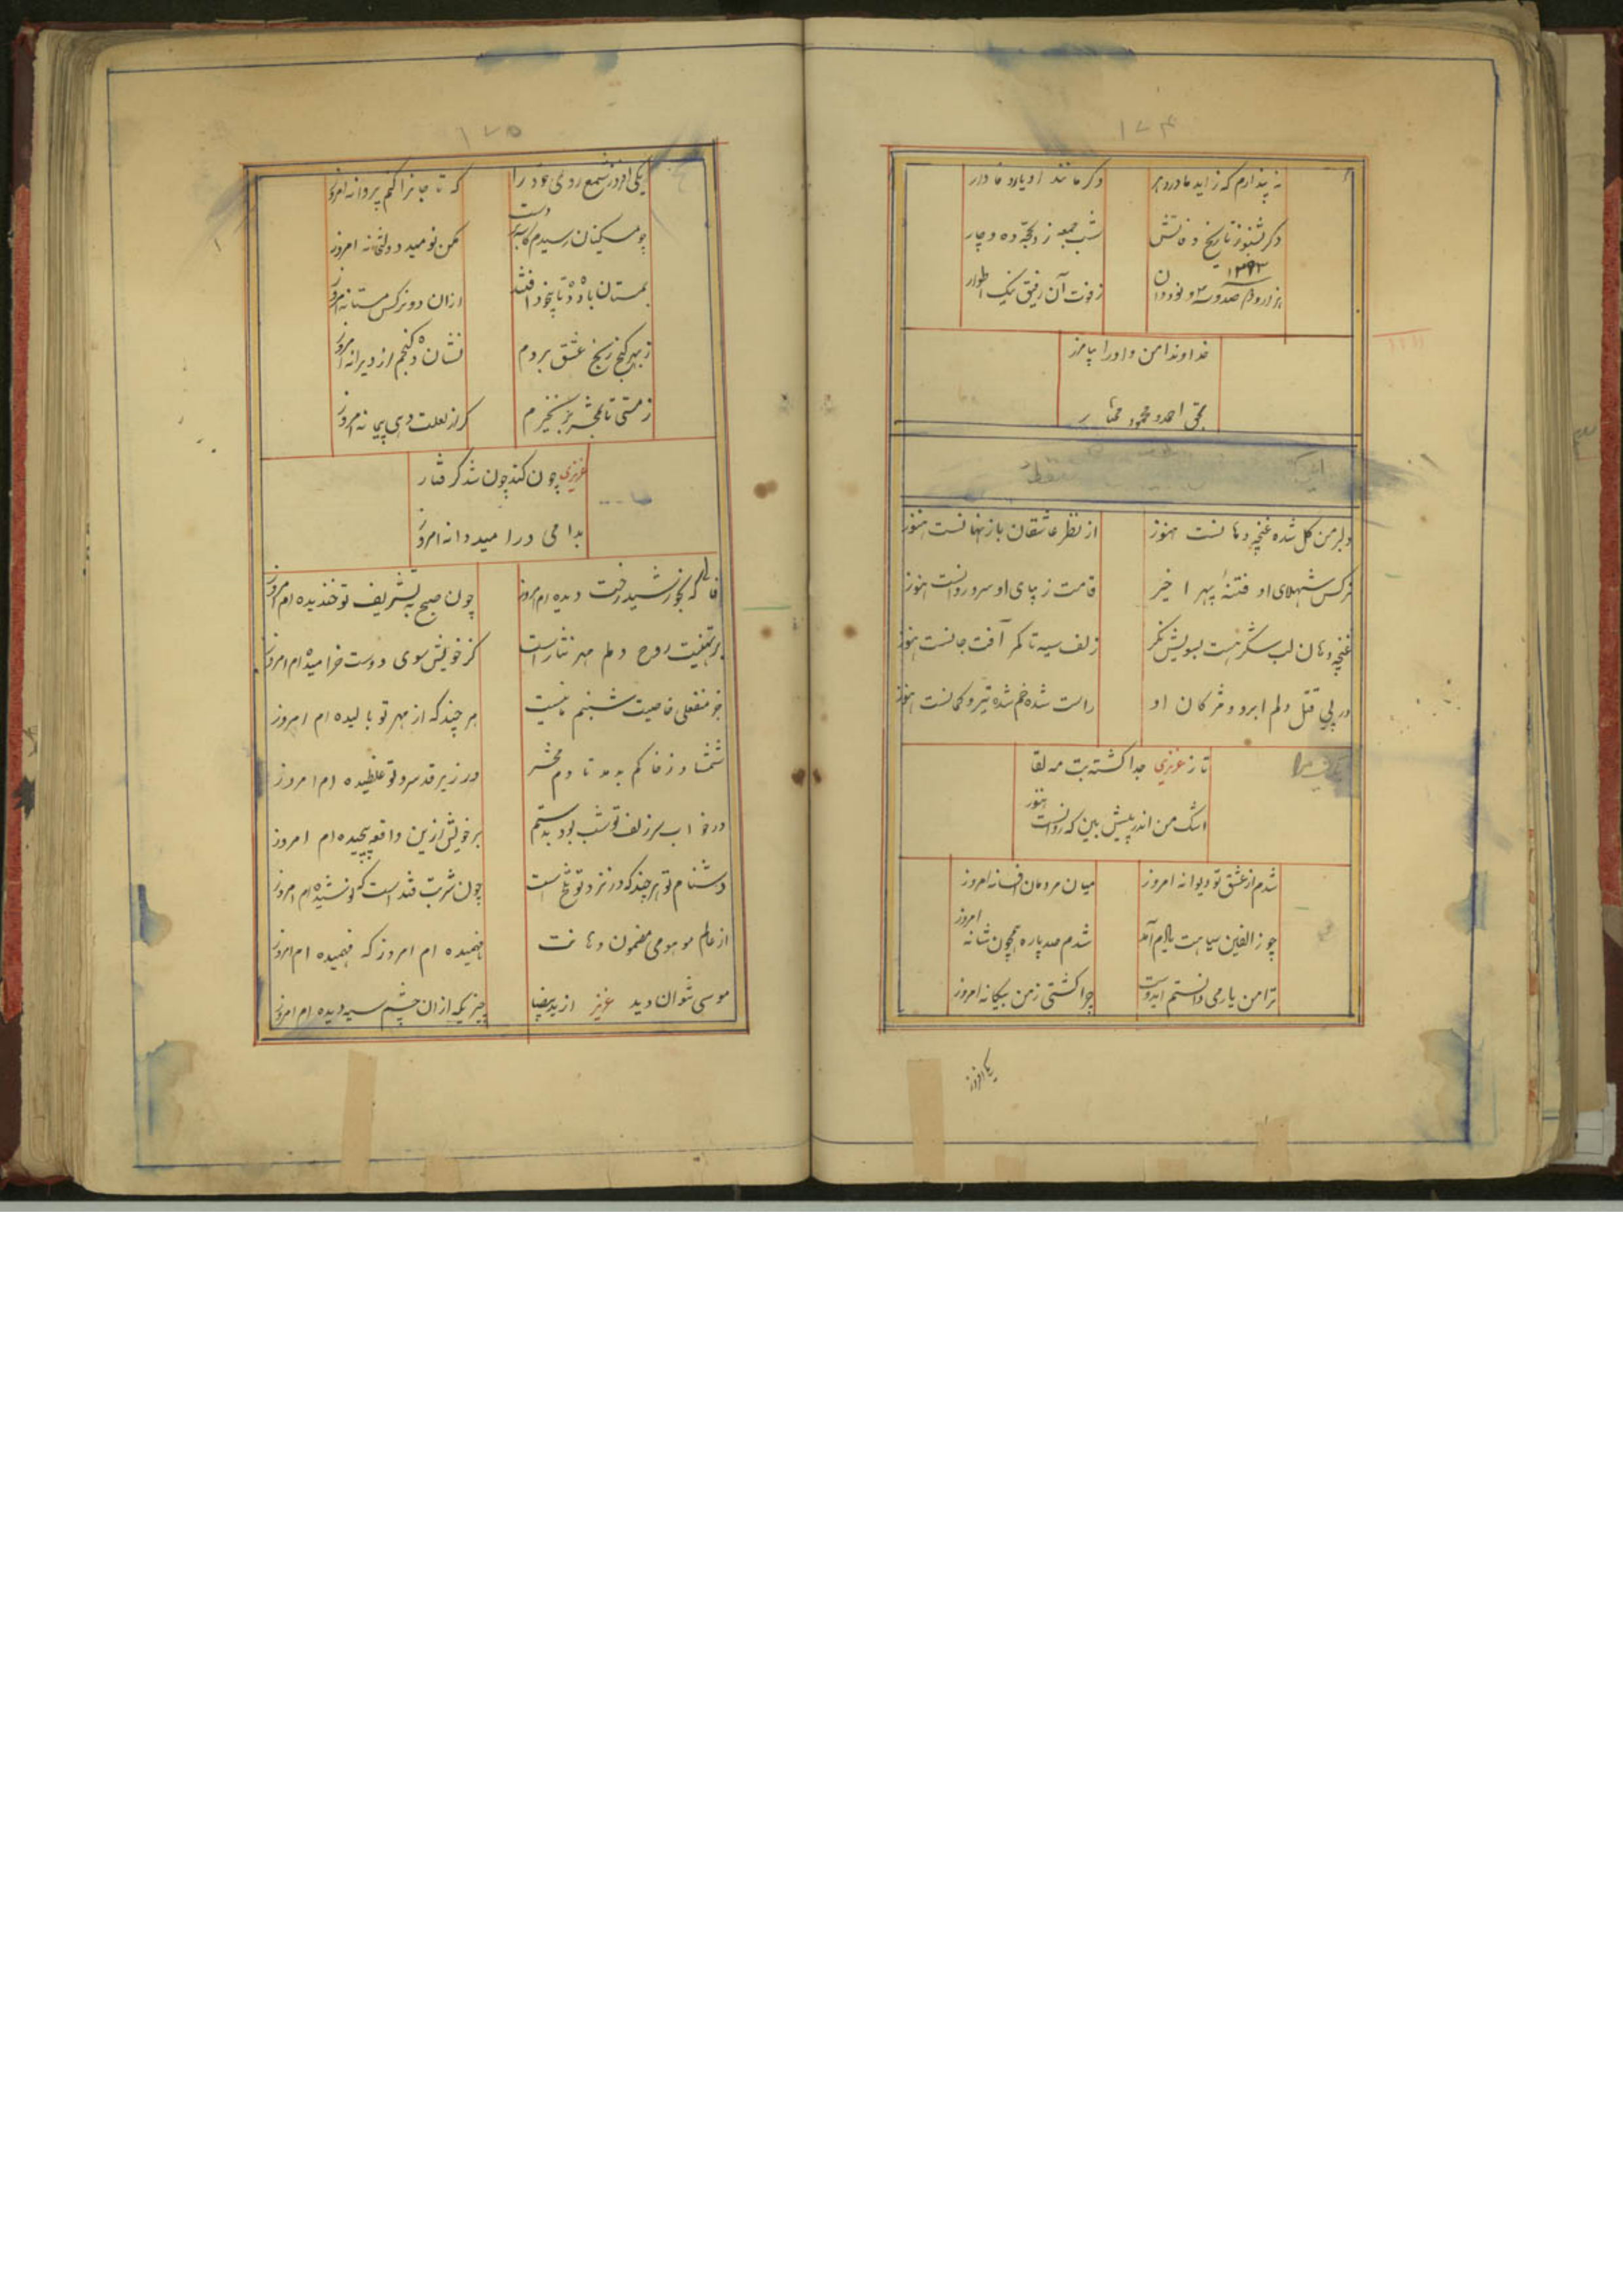 ۱۷۴
نه پندارم که زاید مادر دهر
دکر مانند او یار وفادار
دکر بشنو ز تاریخ وفاتش
شب جمعه ز ذیحجه ده و چار
۱۲۹۳
هزار و صد و نود دان
ز فوت آن رفیق نیک اطوار
خداوندا من و او را بیامرز
بحق احمد و محمود مختار
دلبر من کل شده غنچه دهانست هنوز
از نظر عاشقان باز نهانست هنوز
نرکس شهلای او فتنهٔ بهر اخیر
قامت زیبای او سرو روانست هنوز
غنچه دهان لب شکر هست بسویش نکر
زلف سیه تا کمر آفت جانست هنوز
در پی قتل دلم ابرو و مژکان او
راست شده خم شده تیر و کمانست هنوز
تا ز عزیزی جدا کشته بت مه لقا
اشک من اندر پیش بین که روانست هنوز
شدم از عشق تو دیوانه امروز
میان مردمان افسانه امروز
چو زالفین سیاهت آمد
شدم صد پاره همچون شانه امروز
ترا من یار می دانستم ایدوست
چرا کشتی ز من بیکانه امروز
۱۷۵
یکی افروز شمع روی خود را
که تا جانرا کنم پروانه امروز
چو مسکینان رسیدم
مکن نومید دولتخانه امروز
بمستان باده ده تا بیخود افتند
از ان دو نرکس مستانه امروز
ز بهر کنج رنج عشق بردم
نشان ده کنجم از ویرانه امروز
ز مستی تا بمحشر بر نخیزم
کر از لعلت دهی پیمانه امروز
عزیزی چون کند چون شد کرفتار
بدامی در امید دانه امروز
که بخورشید رخت دیده ام امروز
چون صبح به تشریف تو خندیده ام امروز
بر تهنیت روح دلم مهر نثار است
کز خویش سوی دوست خرامیده ام امروز
جز منفعلی خاصیت شبنم ما نیست
هر چند که از مهر تو بالیده ام امروز
شمشاد ز خاکم بدمد تا دم محشر
در زیر قد سرو تو غلطیده ام امروز
در خواب سر زلف تو شب بود بدستم
بر خویش ازین واقعه پیچیده ام امروز
دشنام تو هر چند که در نزد تو تلخ است
چون شربت قند است که نوشیده ام امروز
از عالم موهومی مضمون دهانت
فهمیده ام امروز که فهمیده ام امروز
موسی نتوان دید عزیز از ید بیضا
چیزیکه از ان چشم سیه دیده ام امروز